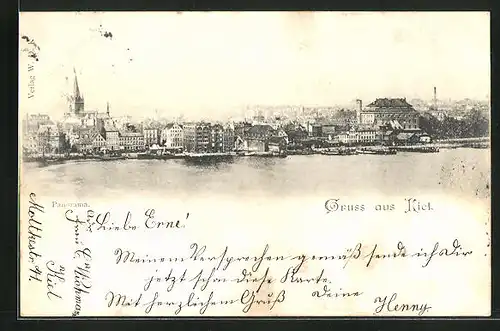 Verlag W.
Panorama.
Gruss aus Kiel.
Liebe Erne!
Meinem Versprechen gemäß sende ich Dir
jetzt schon diese Karte.
Mit herzlichem Gruß Deine
Henny
Frau C.
Kiel
Moltkestr 41